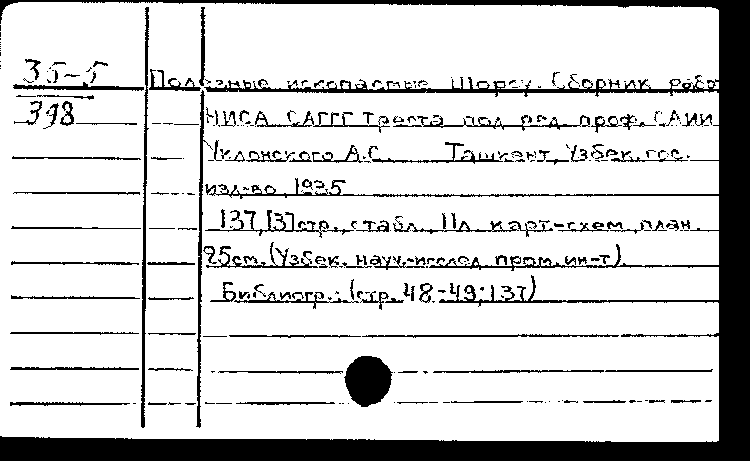 35-5
398
Полезные ископаемые Шорсу. Сборник работ
НИСА САГГГ Треста под ред. проф. САИИ
Уклонского А.С. Ташкент, Узбек. гос.
изд-во, 1935
137, [3] стр., с табл., 11 л. карт-схем, план.
25 cm. (Узбек. науч.-исслед. пром. ин-т).
Библиогр.: (стр. 48-49; 137)